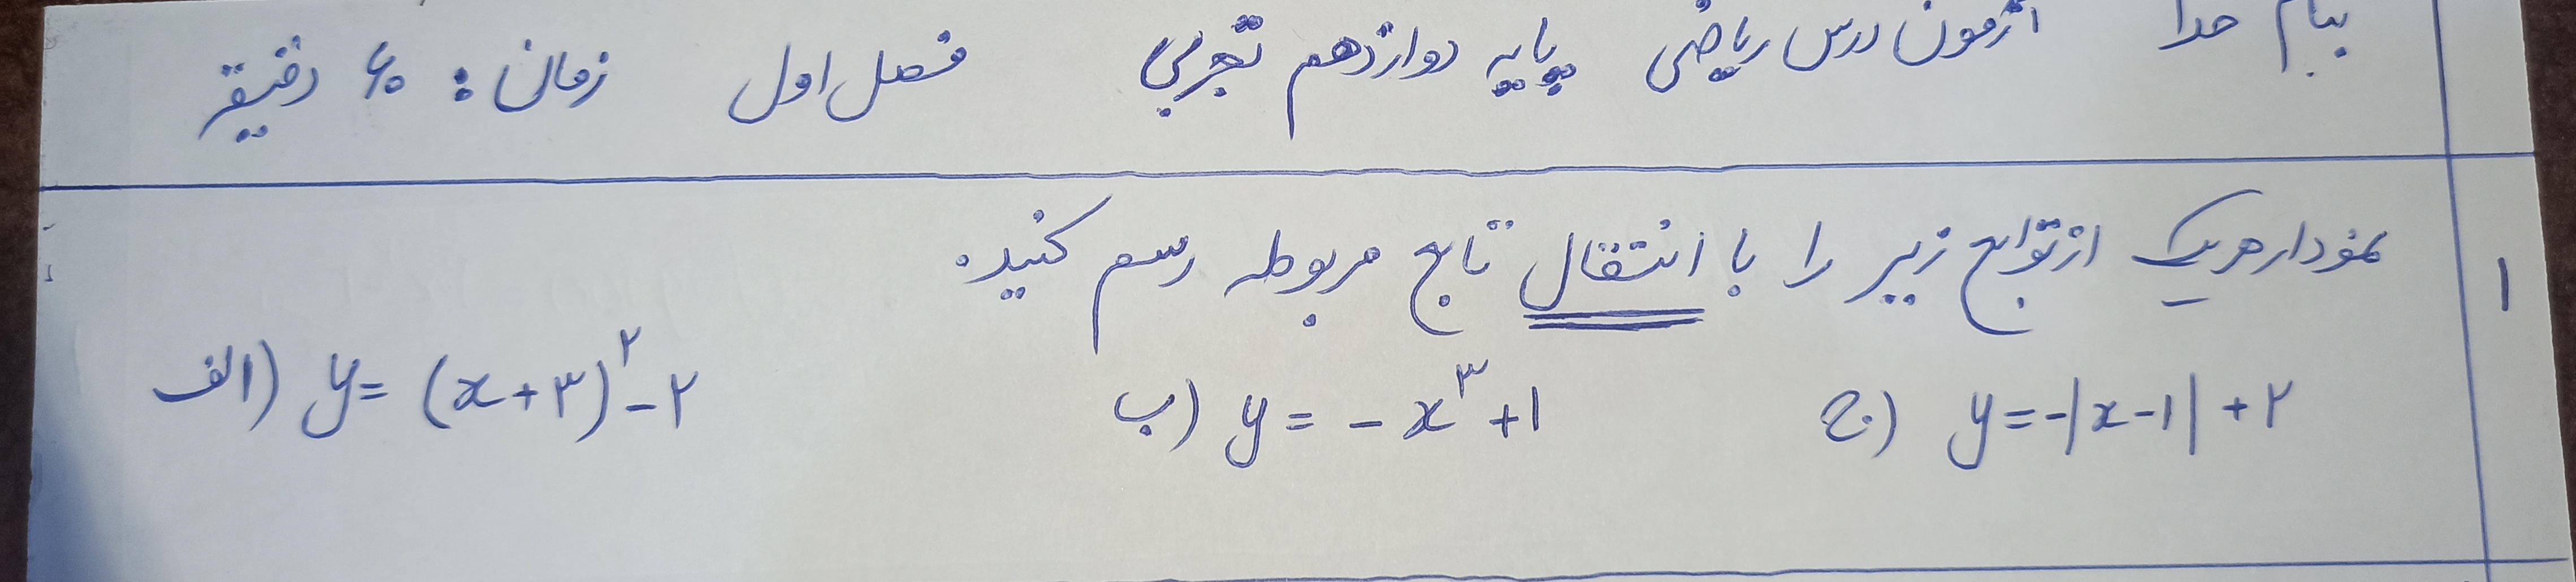 بنام خدا آزمون درس ریاضی پایه دوازدهم تجربی فصل اول زمان: ۶۰ دقیقه
۱ نمودار هریک از توابع زیر را با انتقال تابع مربوطه رسم کنید.
الف) y = (x+۳)^۲ - ۲ ب) y = -x^۳ + ۱ ج) y = -|x-۱| + ۲